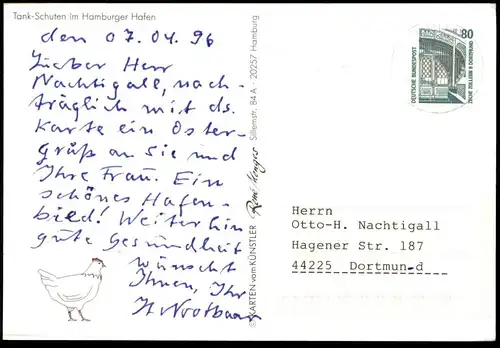 Tank-Schuten im Hamburger Hafen
den 07.04.96
Lieber Herr
Nachtigall, nach-
träglich mit ds.
Karte ein Oster-
gruß an Sie und
Ihre Frau. Ein
schönes Hafen-
bild! Weiterhin
gute Gesundheit
wünscht
Ihnen, Ihr
H. Nootbaar
© KARTEN vom KÜNSTLER René Menges Sillemstr. 84 A · 20257 Hamburg
80
DEUTSCHE BUNDESPOST
ZECHE ZOLLERN II DORTMUND
Herrn
Otto-H. Nachtigall
Hagener Str. 187
44225 Dortmund